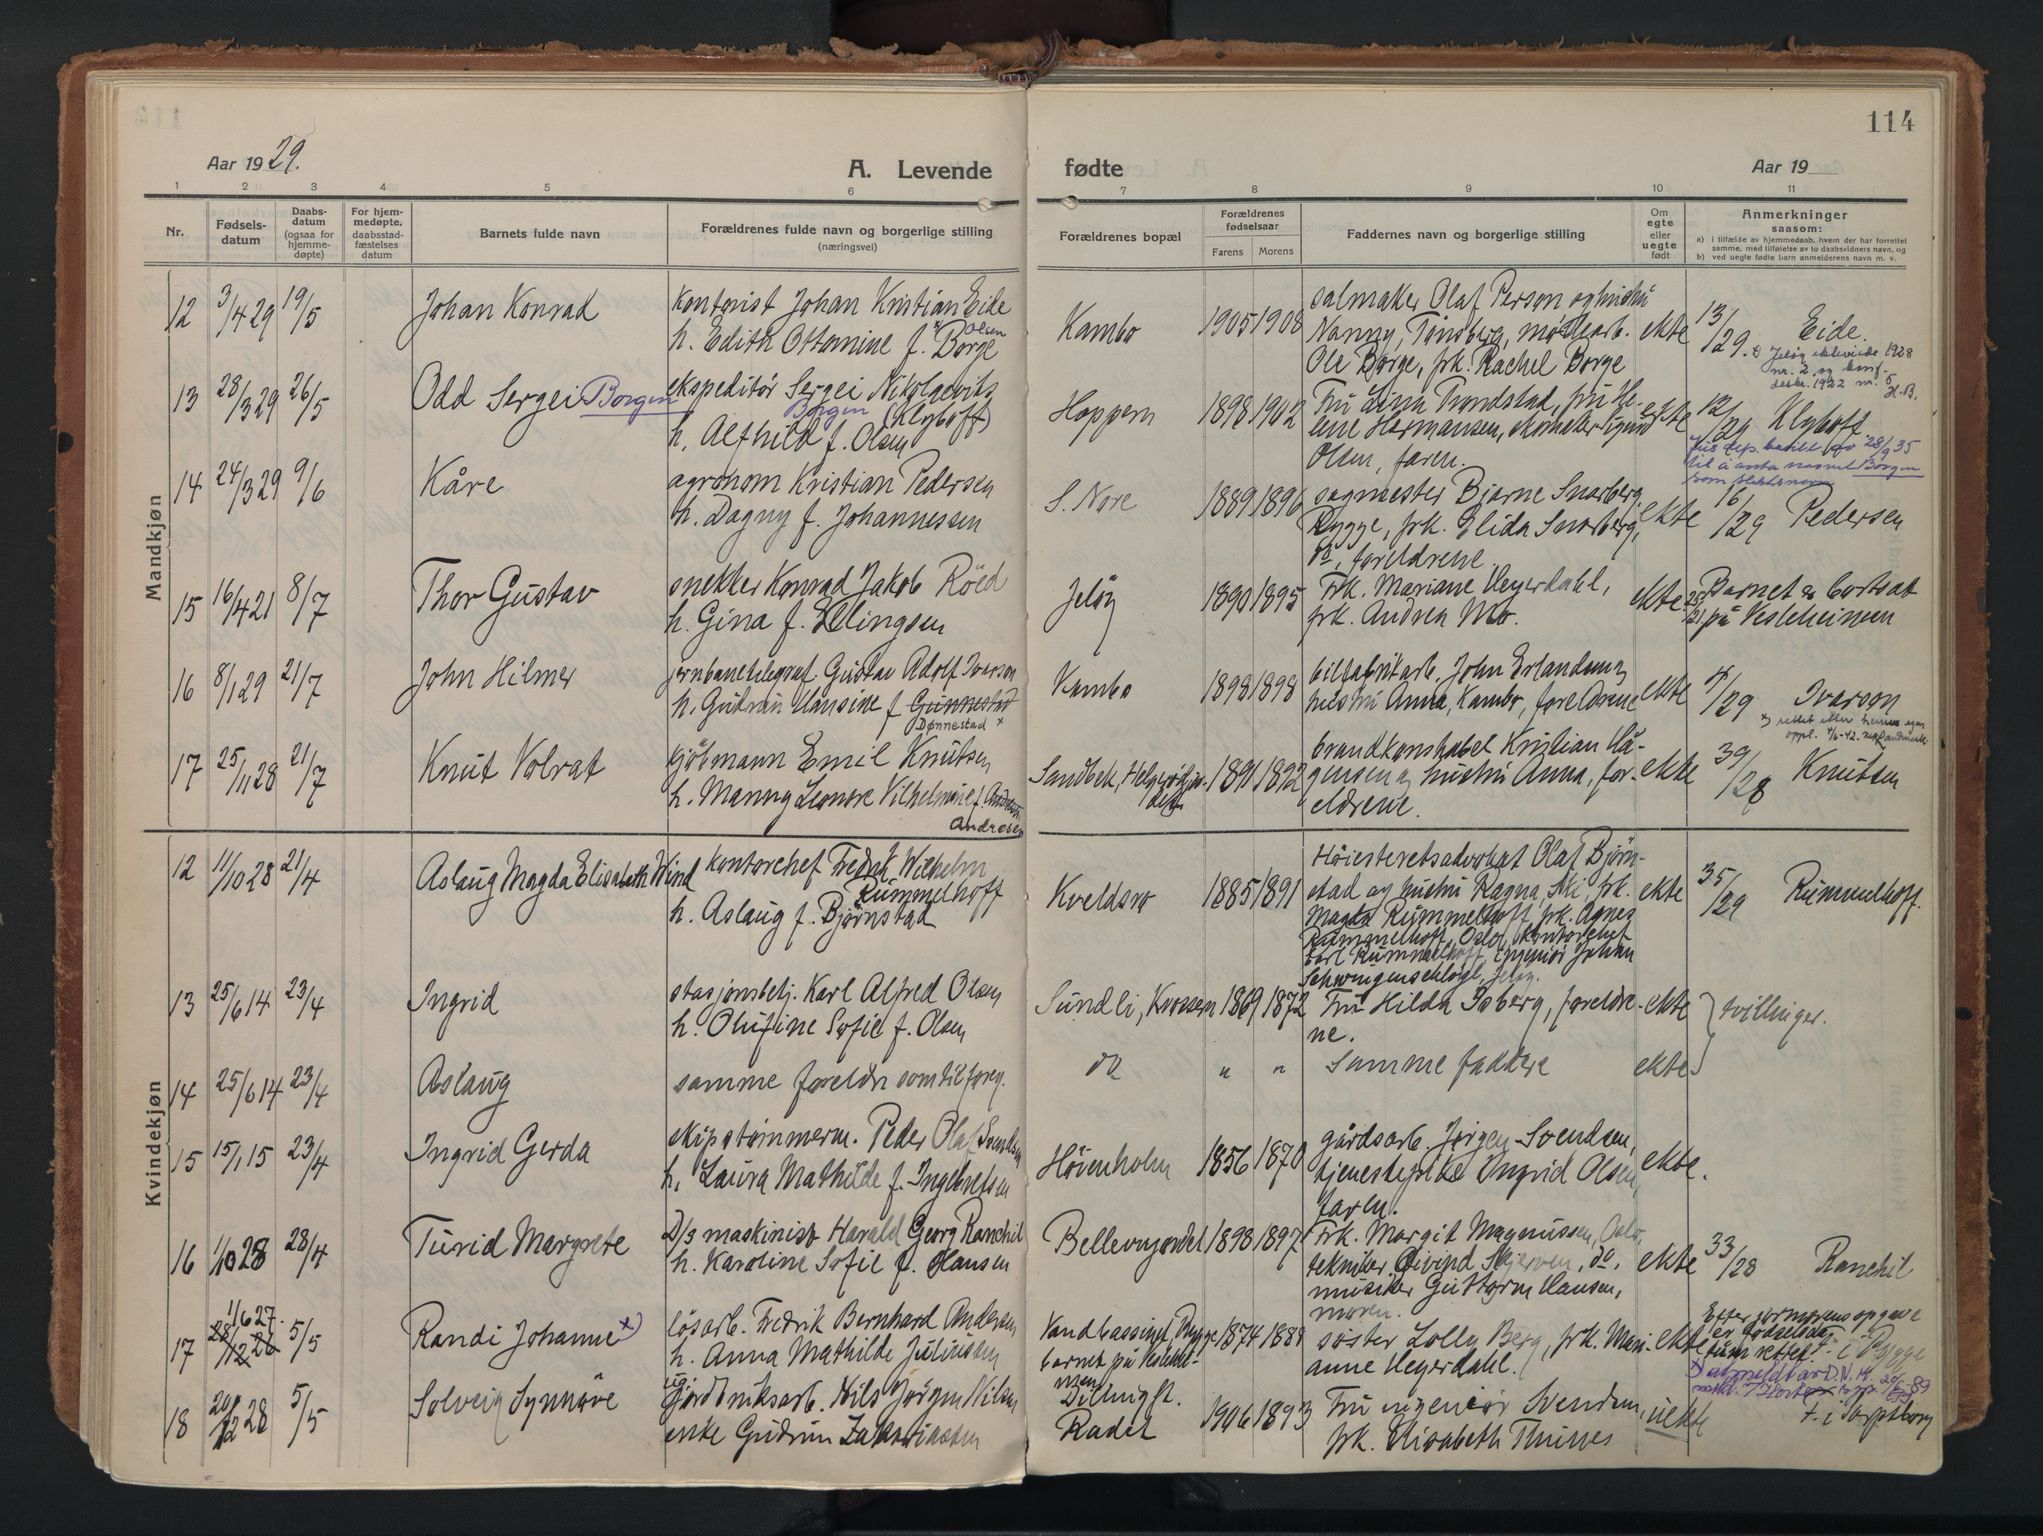 114
Aar 1929.
A. Levende
fødte
Aar 19
1 2 3 4 5 6 7 8 9 10 11
Nr.
Fødsels-
datum
Daabs-
datum
(ogsaa for
hjemme-
døpte)
For hjem-
medøpte,
daabsstad-
fæstelses
datum
Barnets fulde navn
Forældrenes fulde navn og borgerlige stilling
(næringsvei)
Forældrenes bopæl
Forældrenes
fødselsaar
Farens Morens
Faddernes navn og borgerlige stilling
Om
egte
eller
uegte
født
Anmerkninger
saasom:
a) i tilfælde av hjemmedaab, hvem der har forrettet
samme, med tilføielse av to daabsvidners navn, og
b) ved uegte fødte barn anmelderens navn m. v.
Mandkjøn
12 3/4 29 19/5 Johan Konrad
kontorist Johan Kristian Eide
h. Edith Ottomine f. Borge
Olsen
Kambo 1905 1908
salmaker Olaf Person og hustru
Nanny, Tønsberg, møllearb.
Ole Borge, frk. Rachel Borge
ekte 13/29. Eide.
13 28/3 29 26/5 Odd Sergei Borgen
ekspeditør Sergei Nikolaevits
Borgen (Klyhoff)
h. Alfhild f. Olsen
Hoppern 1898 1902
Fru Lina Trondstad, fru He-
lene Hermansen, skomaker Sigurd
Olsen, faren.
ekte 12/29 Klyhoff
Jus dep. bevill. av 28/9 35
til å anta navnet Borgen
som slektsnavn
14 24/3 29 9/6 Kåre
agronom Kristian Pedersen
h. Dagny f. Johannessen
S. Nore 1889 1896
sagmester Bjarne Snarberg,
Rygge, frk. Elida Snarberg,
do, foreldrene
ekte 16/29 Pedersen
15 16/4 21 8/7 Thor Gustav
snekker Konrad Jakob Röed
h. Gina f. Ellingsen
Jeløy 1890 1895
Frk. Mariane Heyerdahl,
frk. Andrea Mo.
ekte. 25/21 Barnet er bortsat
på Vesleheimen
16 8/1 29 21/7 John Hilmer
jernbanetelegraf. Gustav Adolf Ivarson
h. Gudrun Hansine f. Gunnestad
Dønnestad x
Kambo 1898 1898
biltfabrikarb. John Erlandsen og
hustru Anna, Kambo, foreldrene
ekte 4/29 Ivarson
17 25/11 28 21/7 Knut Volrat
kjöbmann Emil Knutsen
h. Manny Leonore Vilhelmine f. Andresen
Andresen
Sandbek, Helgerödgt. 1891 1892
brandkonstabel Kristian Hå-
gensen og hustru Anna, for-
eldrene.
ekte 39/28 Knutsen
Kvindekjøn
12 11/10 28 21/4 Aslaug Magda Elisabeth Wind
kontorchef Fredrik Wilhelm
Rummelhoff
h. Aslaug f. Bjørnstad
Kveldsro 1885 1891
Høiesteretsadvokat Olaf Bjørn-
stad og hustru Ragna, Ski, frk.
Magda Rummelhoff, frk. Agnes
Rummelhoff, Oslo, kontorchef
Carl Rummelhoff, ingeniør Johan
Schwingenschlögl, Jeløy.
ekte 35/29 Rummelhoff.
13 25/6 14 23/4 Ingrid
stasjonsbetj. Karl Alfred Olsen
h. Olufine Sofie f. Olsen
Sundli, Krossern 1869 1872
Fru Hilda Isberg, foreldre-
ne.
ekte tvillinger.
14 25/6 14 23/4 Aslaug
samme foreldre som til foreg.
do " " Samme faddere ekte
15 15/1 15 23/4 Ingrid Gerda
skipstømmerm. Peder Olaf Svendsen
h. Laura Mathilde f. Ingebretsen
Höienholm 1856 1870
gårdsarb. Jørgen Svendsen,
tjenestepike Ingrid Olsen,
faren.
ekte.
16 1/10 28 28/4 Turid Margrete
D/S maskinist Harald Georg Ranchil
h. Karoline Sofie f. Hansen
Bellevuejordet 1898 1897
Frk. Margit Magnussen, Oslo,
tekniker Øivind Skjerven, do,
musiker Guttorm Hansen,
moren.
ekte 33/28 Ranchil
17 1/6 27. 28/12 26 5/5 Randi Johanne x)
løsarb. Fredrik Bernhard Andersen
h. Anna Mathilde Juliussen
Vandbassinet, Rygge 1874 1888
barnet på Veslehei-
men
søster Lolly Berg, frk. Mari-
anne Heyerdahl.
ekte
Efter formorens opgave
er fødselsdatum rettet. F. i Rygge
18 20/12 28 5/5 Solveig Synnöve
ug. jordbruksarb. Nils Jørgen Nilsen
enke Gudrun Zakariassen
Dillingt.
Radet 1906 1893
Fru ingeniør Svendsen,
frk. Elisabeth Thunes
uekte F. i Sarpsborg